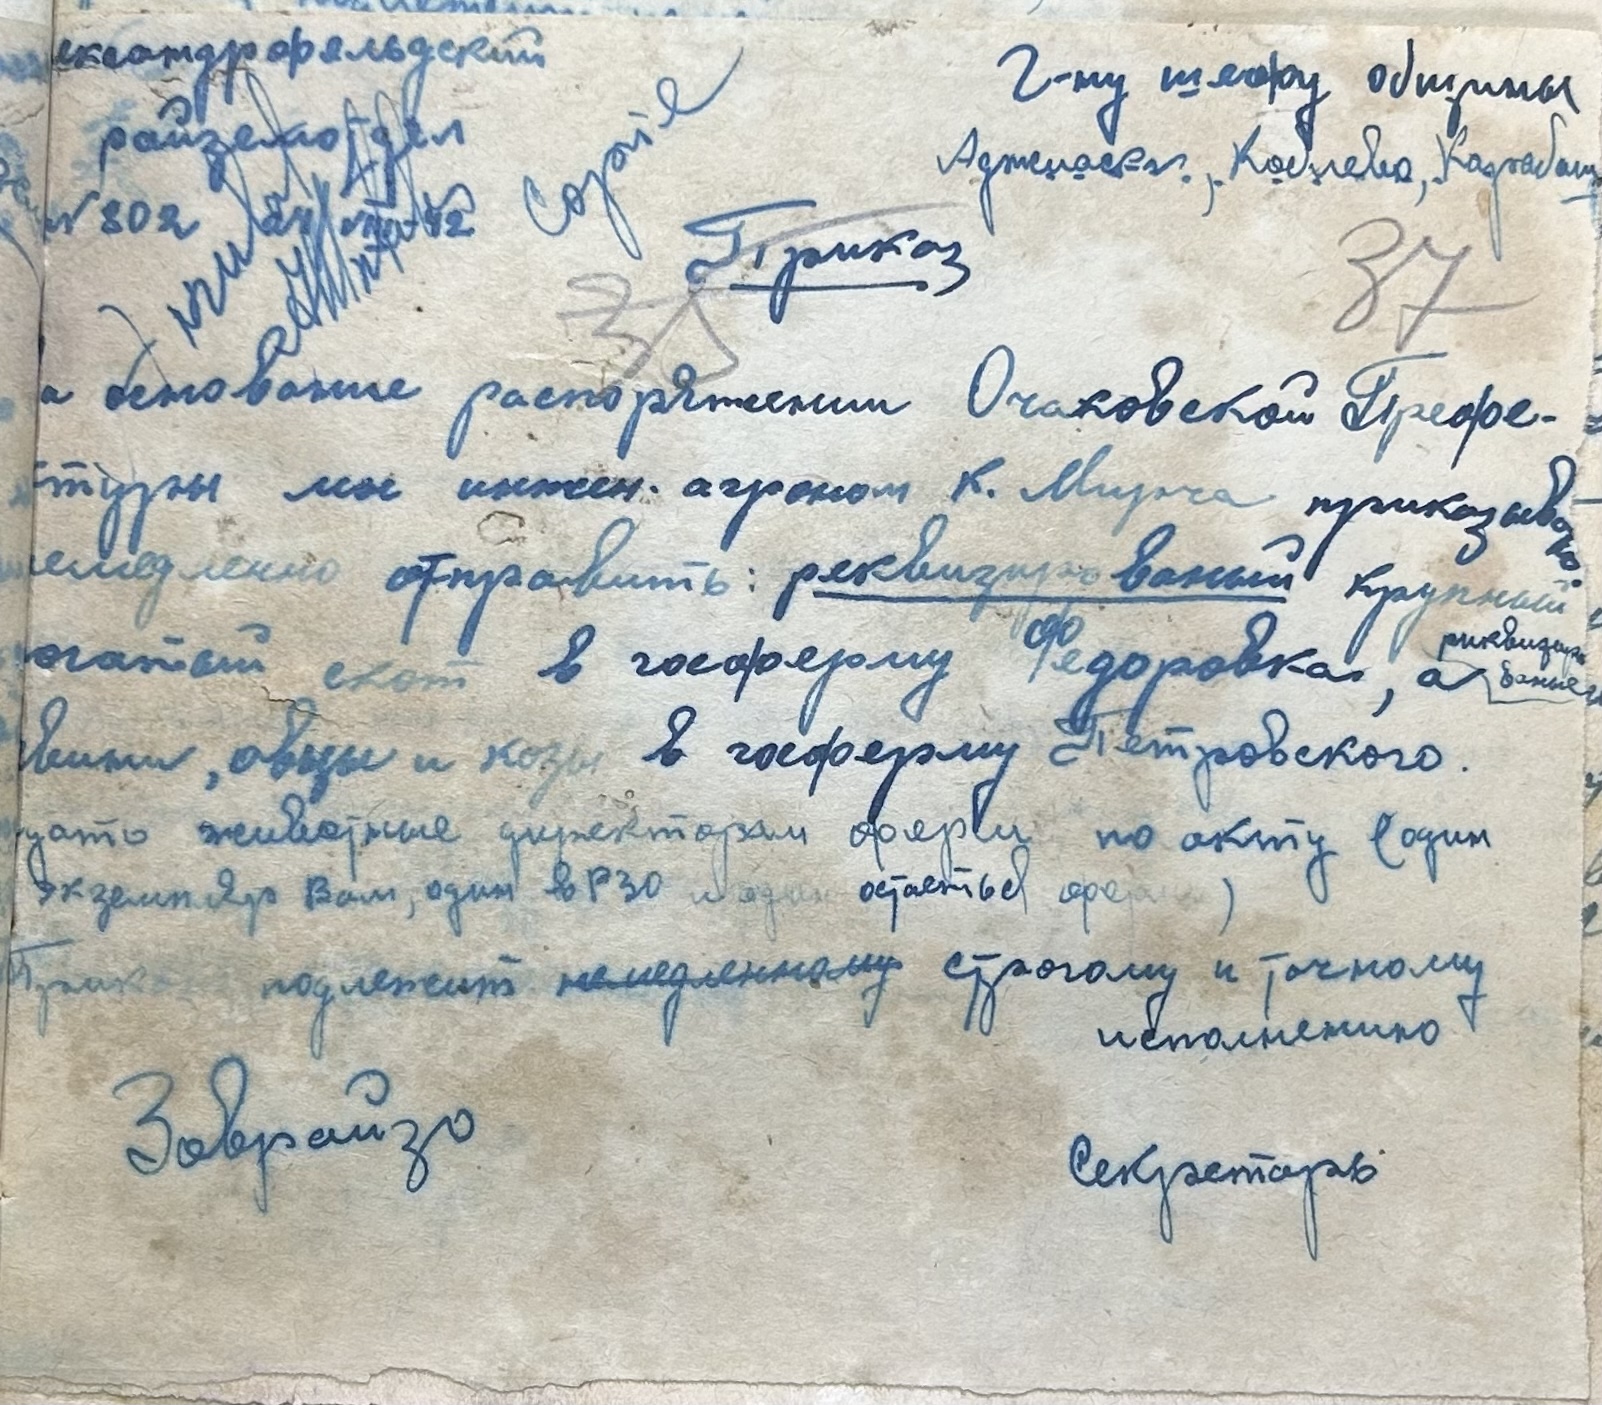 ександрофельдский
райземотдел
N 302
Copie
Г-ну шефу общины
Аджиаска, Коблево, Карабаш
Приказ
37
а основание распоряжении Очаковской Префе-
ктуры мы инжен. агроном К. приказываю
емедленно отправить: реквизированый крупный
огатый скот в госферму Федоровка, а реквизиро
ваные
свиньи, овцы и козы в госферму Петровского.
дать животные директорам фермы по акту (один
экземпляр Вам, один в РЗО и один остаеться ферме)
Приказ подлежит немедленному строгому и точному
исполнению
Заврайзо
Секретарь